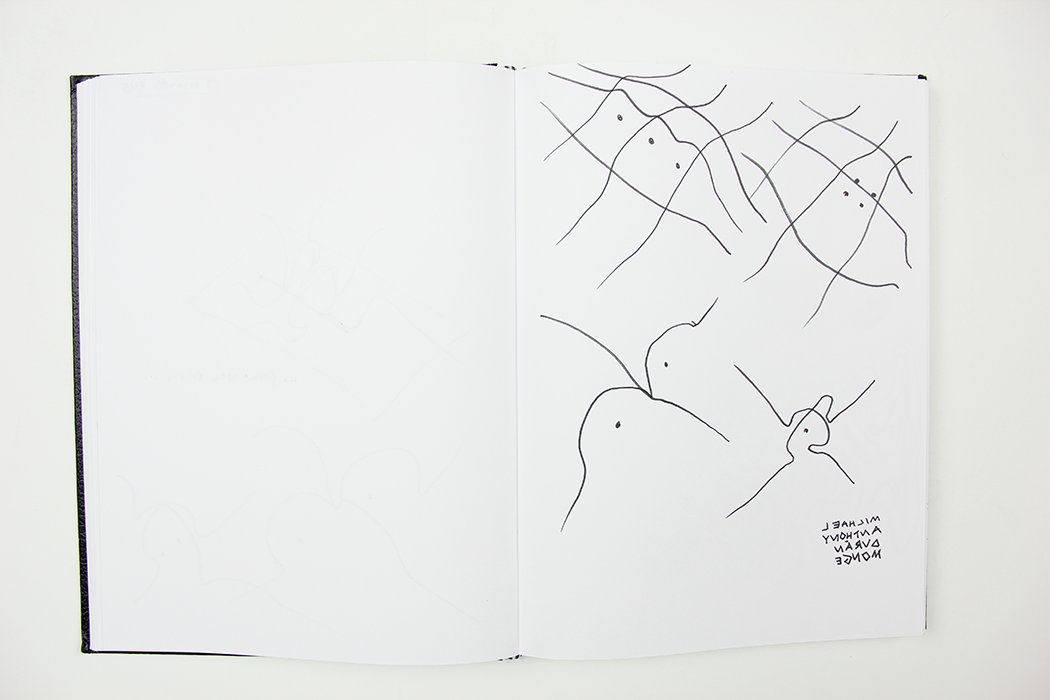 MICHAEL
ANTHONY
DURÁN
MONGE